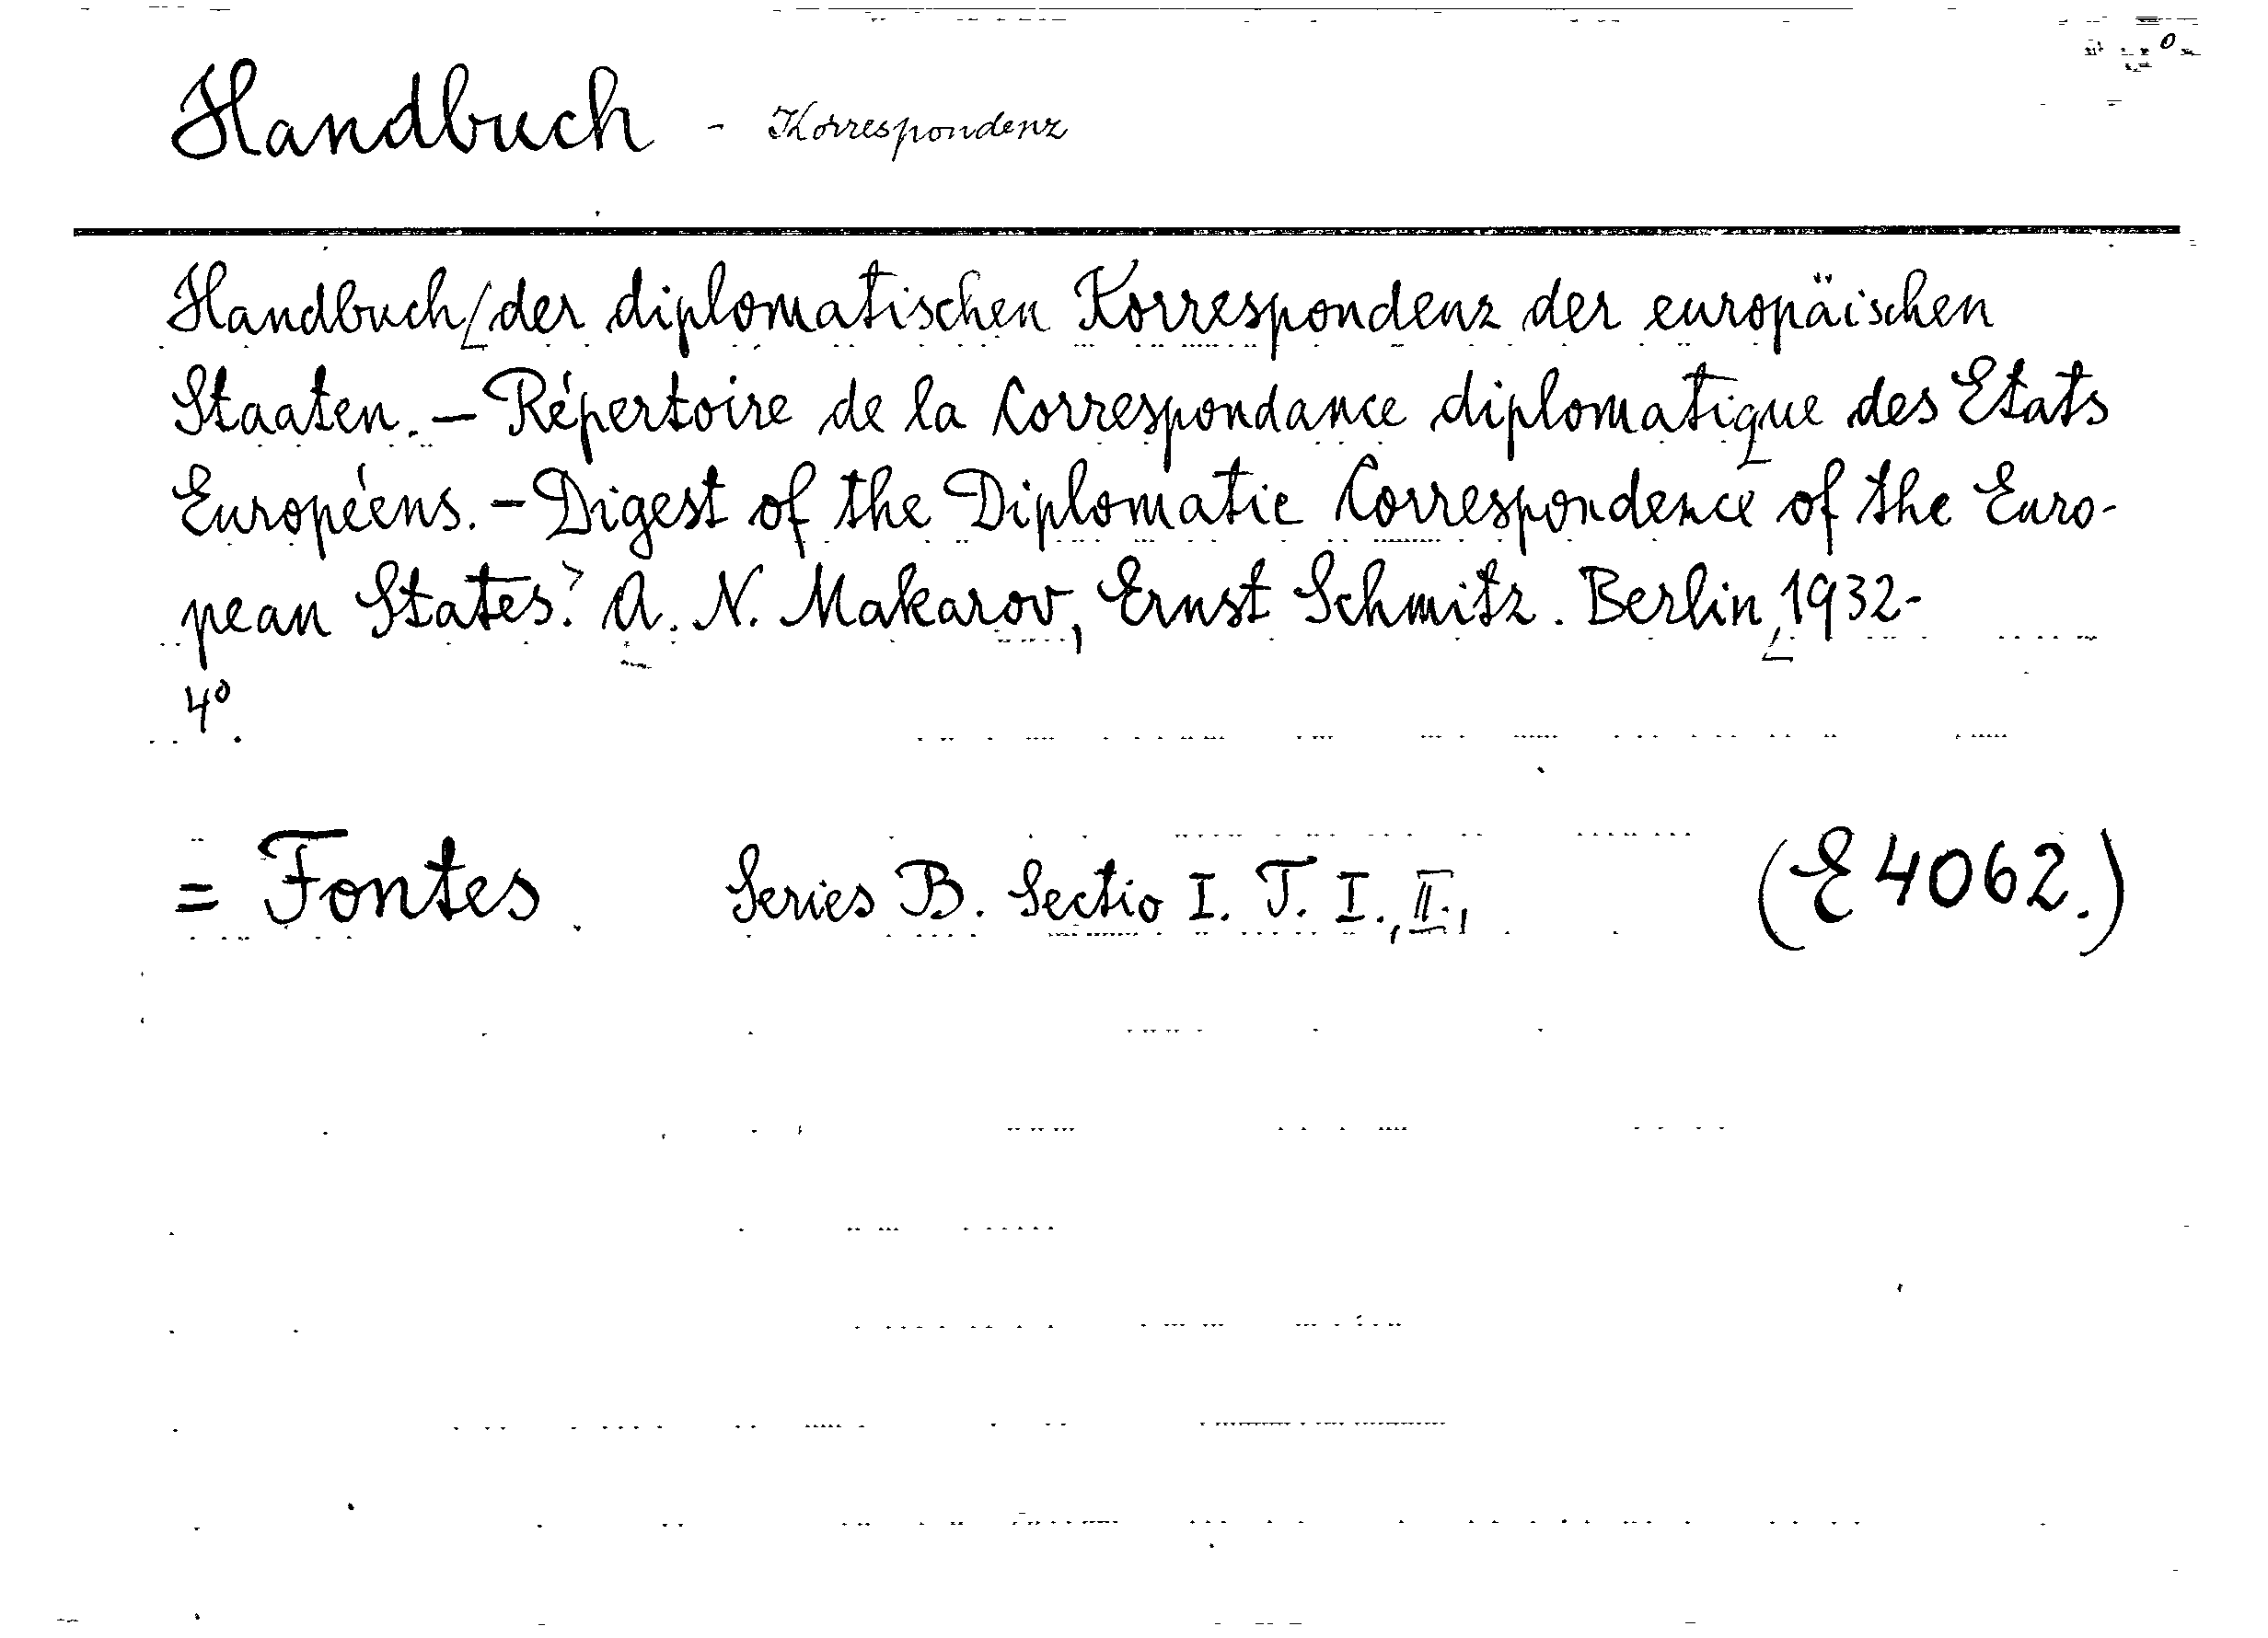 Handbuch - Korrespondenz
Handbuch/der diplomatischen Korrespondenz der europäischen
Staaten. – Répertoire de la Correspondance diplomatique des Etats
Européens. – Digest of the Diplomatic Correspondence of the Euro-
pean States. A. N. Makarov, Ernst Schmitz. Berlin, 1932-
4°.
= Fontes. Series B. Sectio I. T. I., II., (E 4062.)